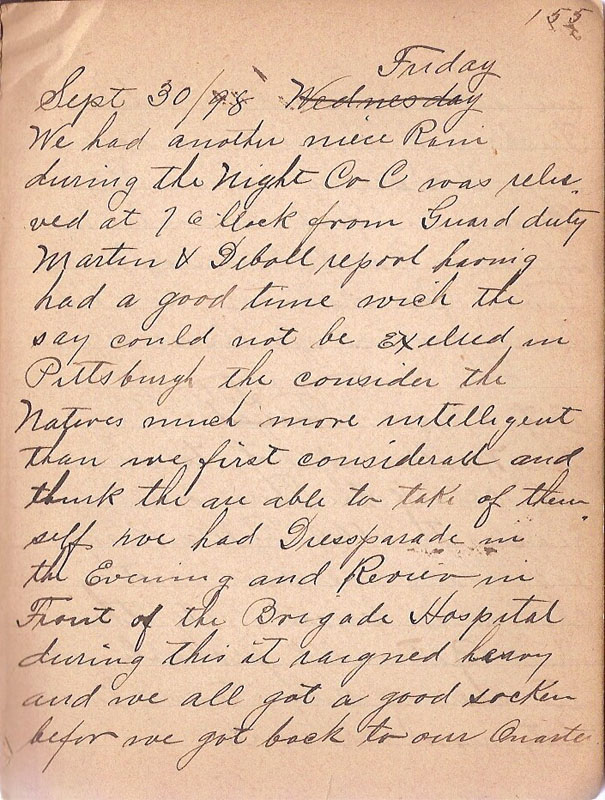 155
Friday
Sept 30/98 Wednesday
We had another niece Rain
during the Night Co C was relie"
ved at 7 O Clock from Guard duty
Martin & Diboll report having
had a good time wich the
say could not be Exelled in
Pittsburgh the consider the
Natives much more intelligent
than we first considerate and
think the are able to take of them"
self we had Dressparade in
the Evening and Review in
Front of the Brigade Hospital
during this it raigned heavy
and we all got a good socken
befor we got back to our Quarte